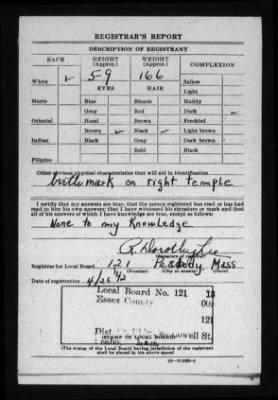 REGISTRAR'S REPORT
DESCRIPTION OF REGISTRANT
RACE HEIGHT (Approx.) WEIGHT (Approx.) COMPLEXION
White ✓ 5-9 166 Sallow
EYES HAIR Light
Negro Blue Blonde Ruddy
Gray Red Dark ✓
Oriental Hazel Brown Freckled
Brown ✓ Black ✓ Light brown
Indian Black Gray Dark brown
Bald Black
Filipino
Other obvious physical characteristics that will aid in identification
birthmark on right temple
I certify that my answers are true; that the person registered has read or has had read to him his own answers; that I have witnessed his signature or mark and that all of his answers of which I have knowledge are true, except as follows:
None to my Knowledge
R. Dorothy Lee
Registrar for Local Board 121 Peabody Mass
(Number) (City or county)
Date of registration 4/26/42
Local Board No. 121 18
Essex County 009
121
Lowell St.
(STAMP OF LOCAL BOARD)
(The stamp of the Local Board having jurisdiction of the registrant shall be placed in the above space)